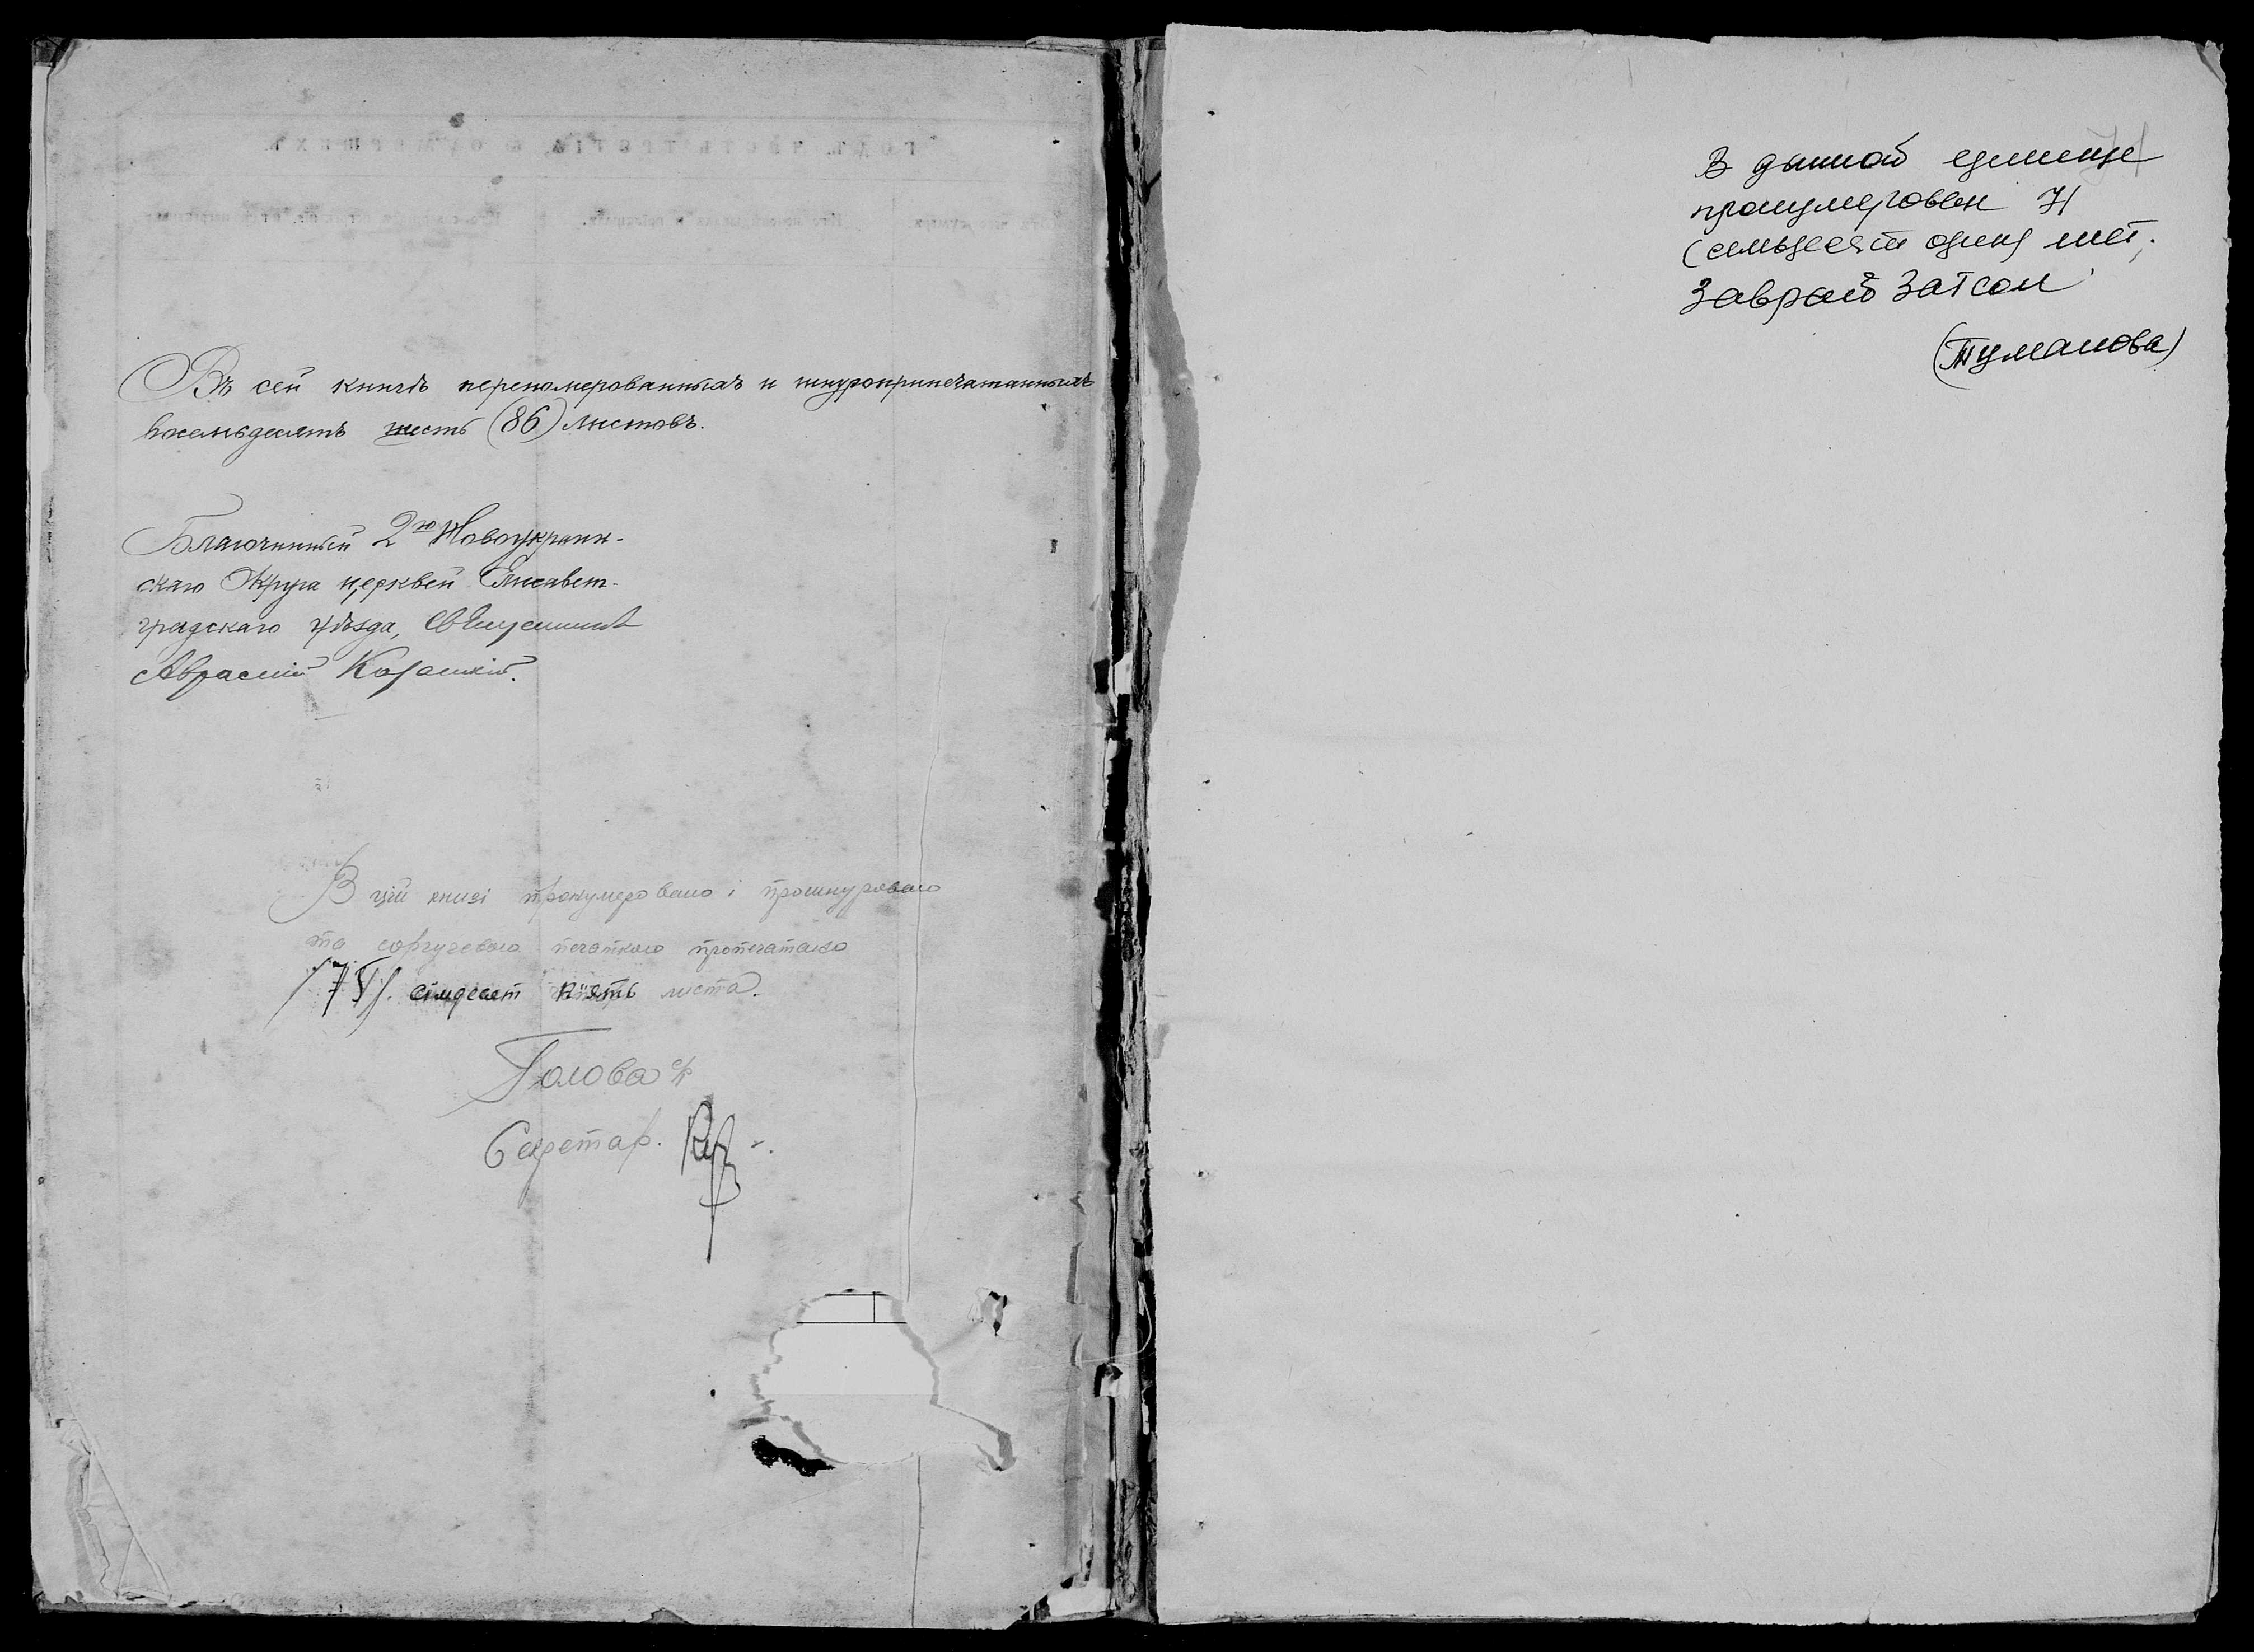 Въ сей книгѣ перономерованныхъ и шнуроприпечатанныхъ
восемьдесятъ шесть (86) листовъ.
Благочинный 2го Новоукраин-
скаго Округа церквей Елисавет-
градскаго уѣзда, Священникъ
Аврамій Козацкій.
В цій книзі пронумеровано і прошнуровано
та сургучевою печаткою пропечатано
/75/. сімдесят пять листа.
Голова с/р
Секретар.
71
В данной единице
пронумерован 71
(семьдесят один) лист.
Заврай Загсом
(Туманова)